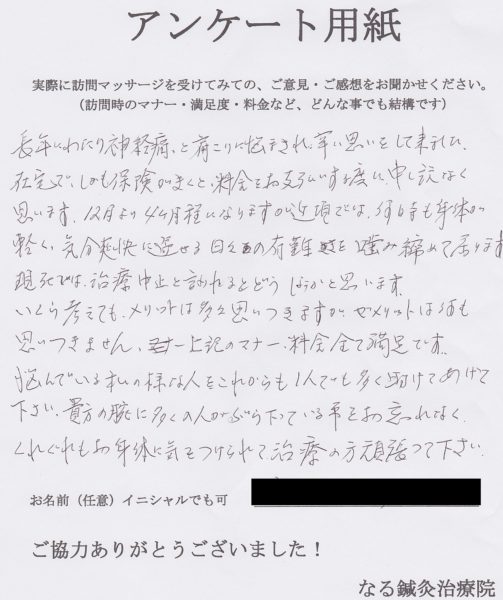 アンケート用紙
実際に訪問マッサージを受けてみての、ご意見・ご感想をお聞かせください。
（訪問時のマナー・満足度・料金など、どんな事でも結構です）
長年にわたり神経痛、と肩こりに悩まされ、辛い思いをして来ました。
在宅で、しかも保険がきくと、料金をお支払いする度に、申し訳なく
思います、12月より4ヶ月程になりますが近頃では、何時も身体が
軽く、気分爽快に過せる日々の有難を噛み締めて居ります
現在では、治療中止と言われるとどうしようかと思います。
いくら考えても、メリットは多々思いつきますが、デメリットは何も
思いつきません、上記のマナー、料金全て満足です。
悩んでいる私の様な人をこれからも1人でも多く助けてあげて
下さい、貴方の腕に多くの人がぶら下っている事をお忘れなく、
くれぐれもお身体に気をつけられて治療の方頑張って下さい。
お名前（任意）イニシャルでも可
ご協力ありがとうございました！
なる鍼灸治療院